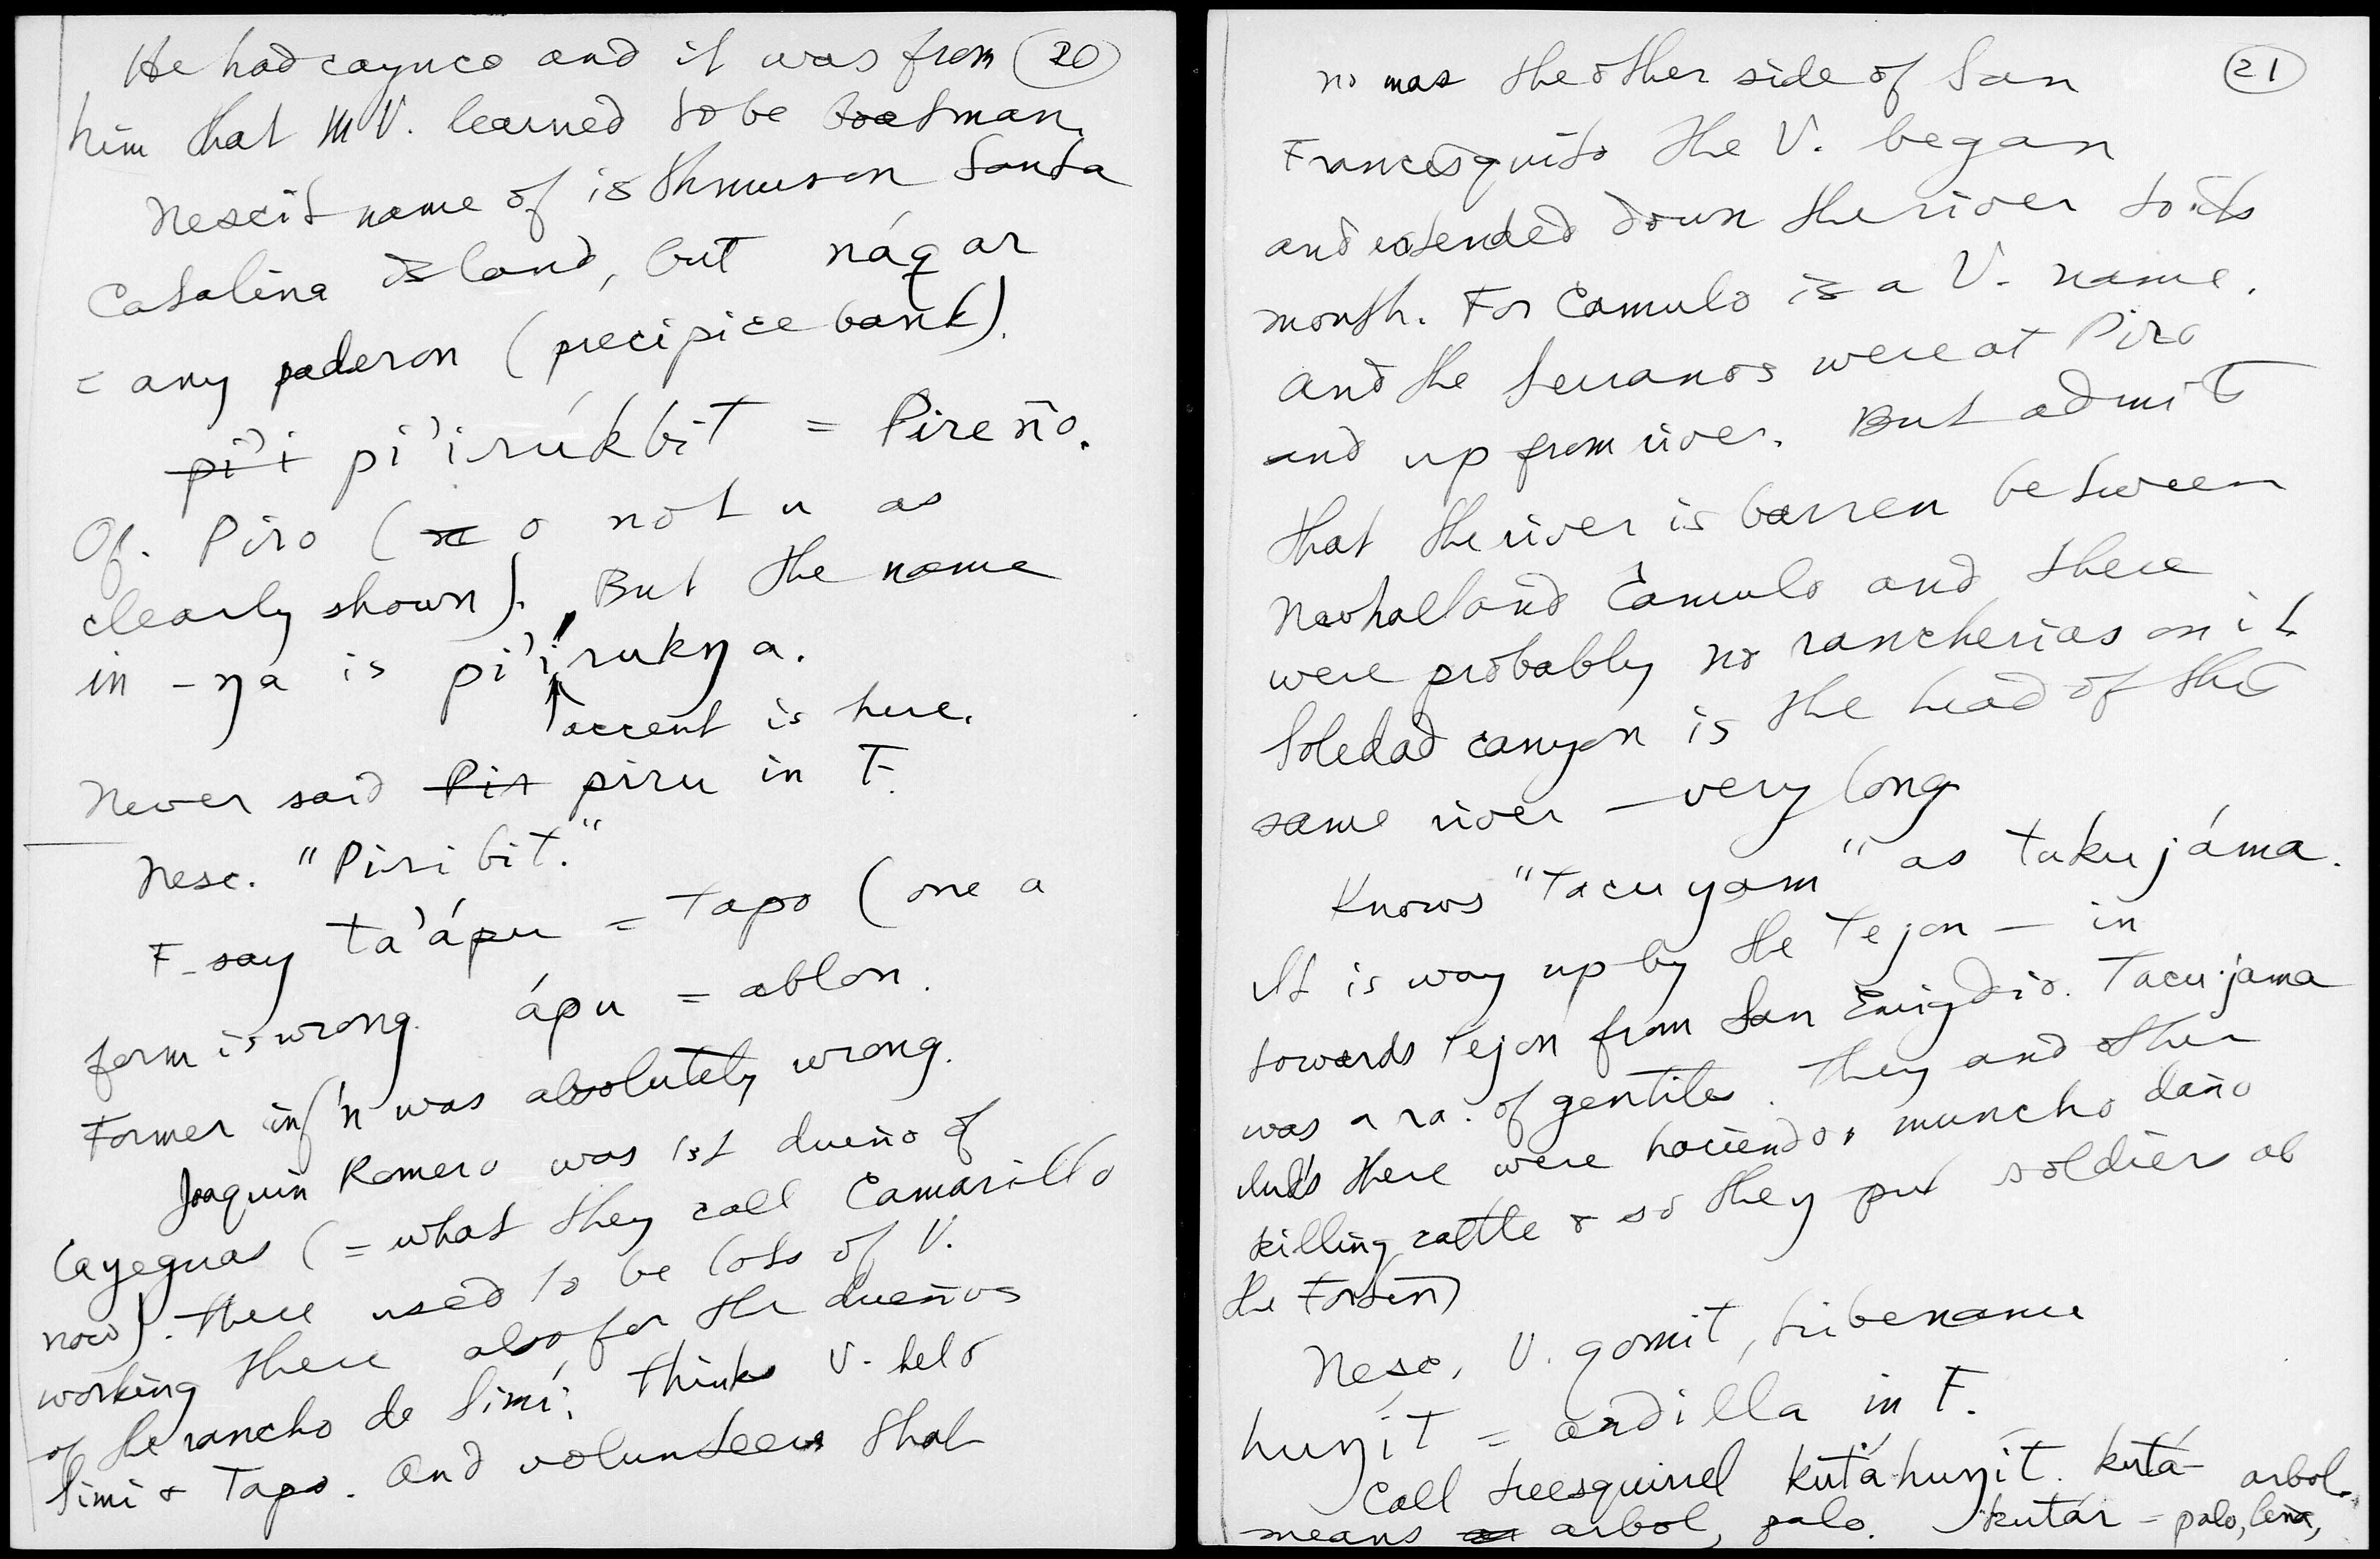 He had cayuco and it was from (20)
him that MV. learned to be boatman.
Nescit name of isthmus on Santa
Catalina island, but náqar
= any paderon (precipice bank).
pi'i pi'irúkbit = Pireño.
Of. Piro (u o not u as
clearly shown). But the name
in -ŋa is pi'írukŋa.
accent is here.
Never said Pir piru in F.
Nesc. "Piribit."
F. say ta'ápu = Tapo (one a
form is wrong. ápu = ablon.
Former inf'n was absolutely wrong.
Joaquin Romero was 1st dueño of
Cayeguas (= what they call Camarillo
now). There used to be lots of V.
working there also for the dueños
of the rancho de Simí; thinks V. held
Simi & Tapo. And volunteers that
no mas the other side of San (21)
Francisquito the V. began
and extended down the river to its
mouth. For Camulo is a V. name.
And the Serranos were at Piro
and up from river. But admits
that the river is barren between
Newhall and Camulo and there
were probably no rancherias on it
Soledad canyon is the head of the
same river — very long
Knows "Tacuyam" as takujáma.
It is way up by the Tejon — in
towards Tejon from San Emigdio. Tacujama
was a ra. of gentiles. They and other
Inds there were haciendo muncho daño
killing cattle & so they put soldiers at
the Fortin)
Nesc, V. qomit, tribename
huŋít = ardilla in F.
Call treesquirrel kutáhuŋit. kutá- arbol.
means arbol, palo. kutár = palo, leña,